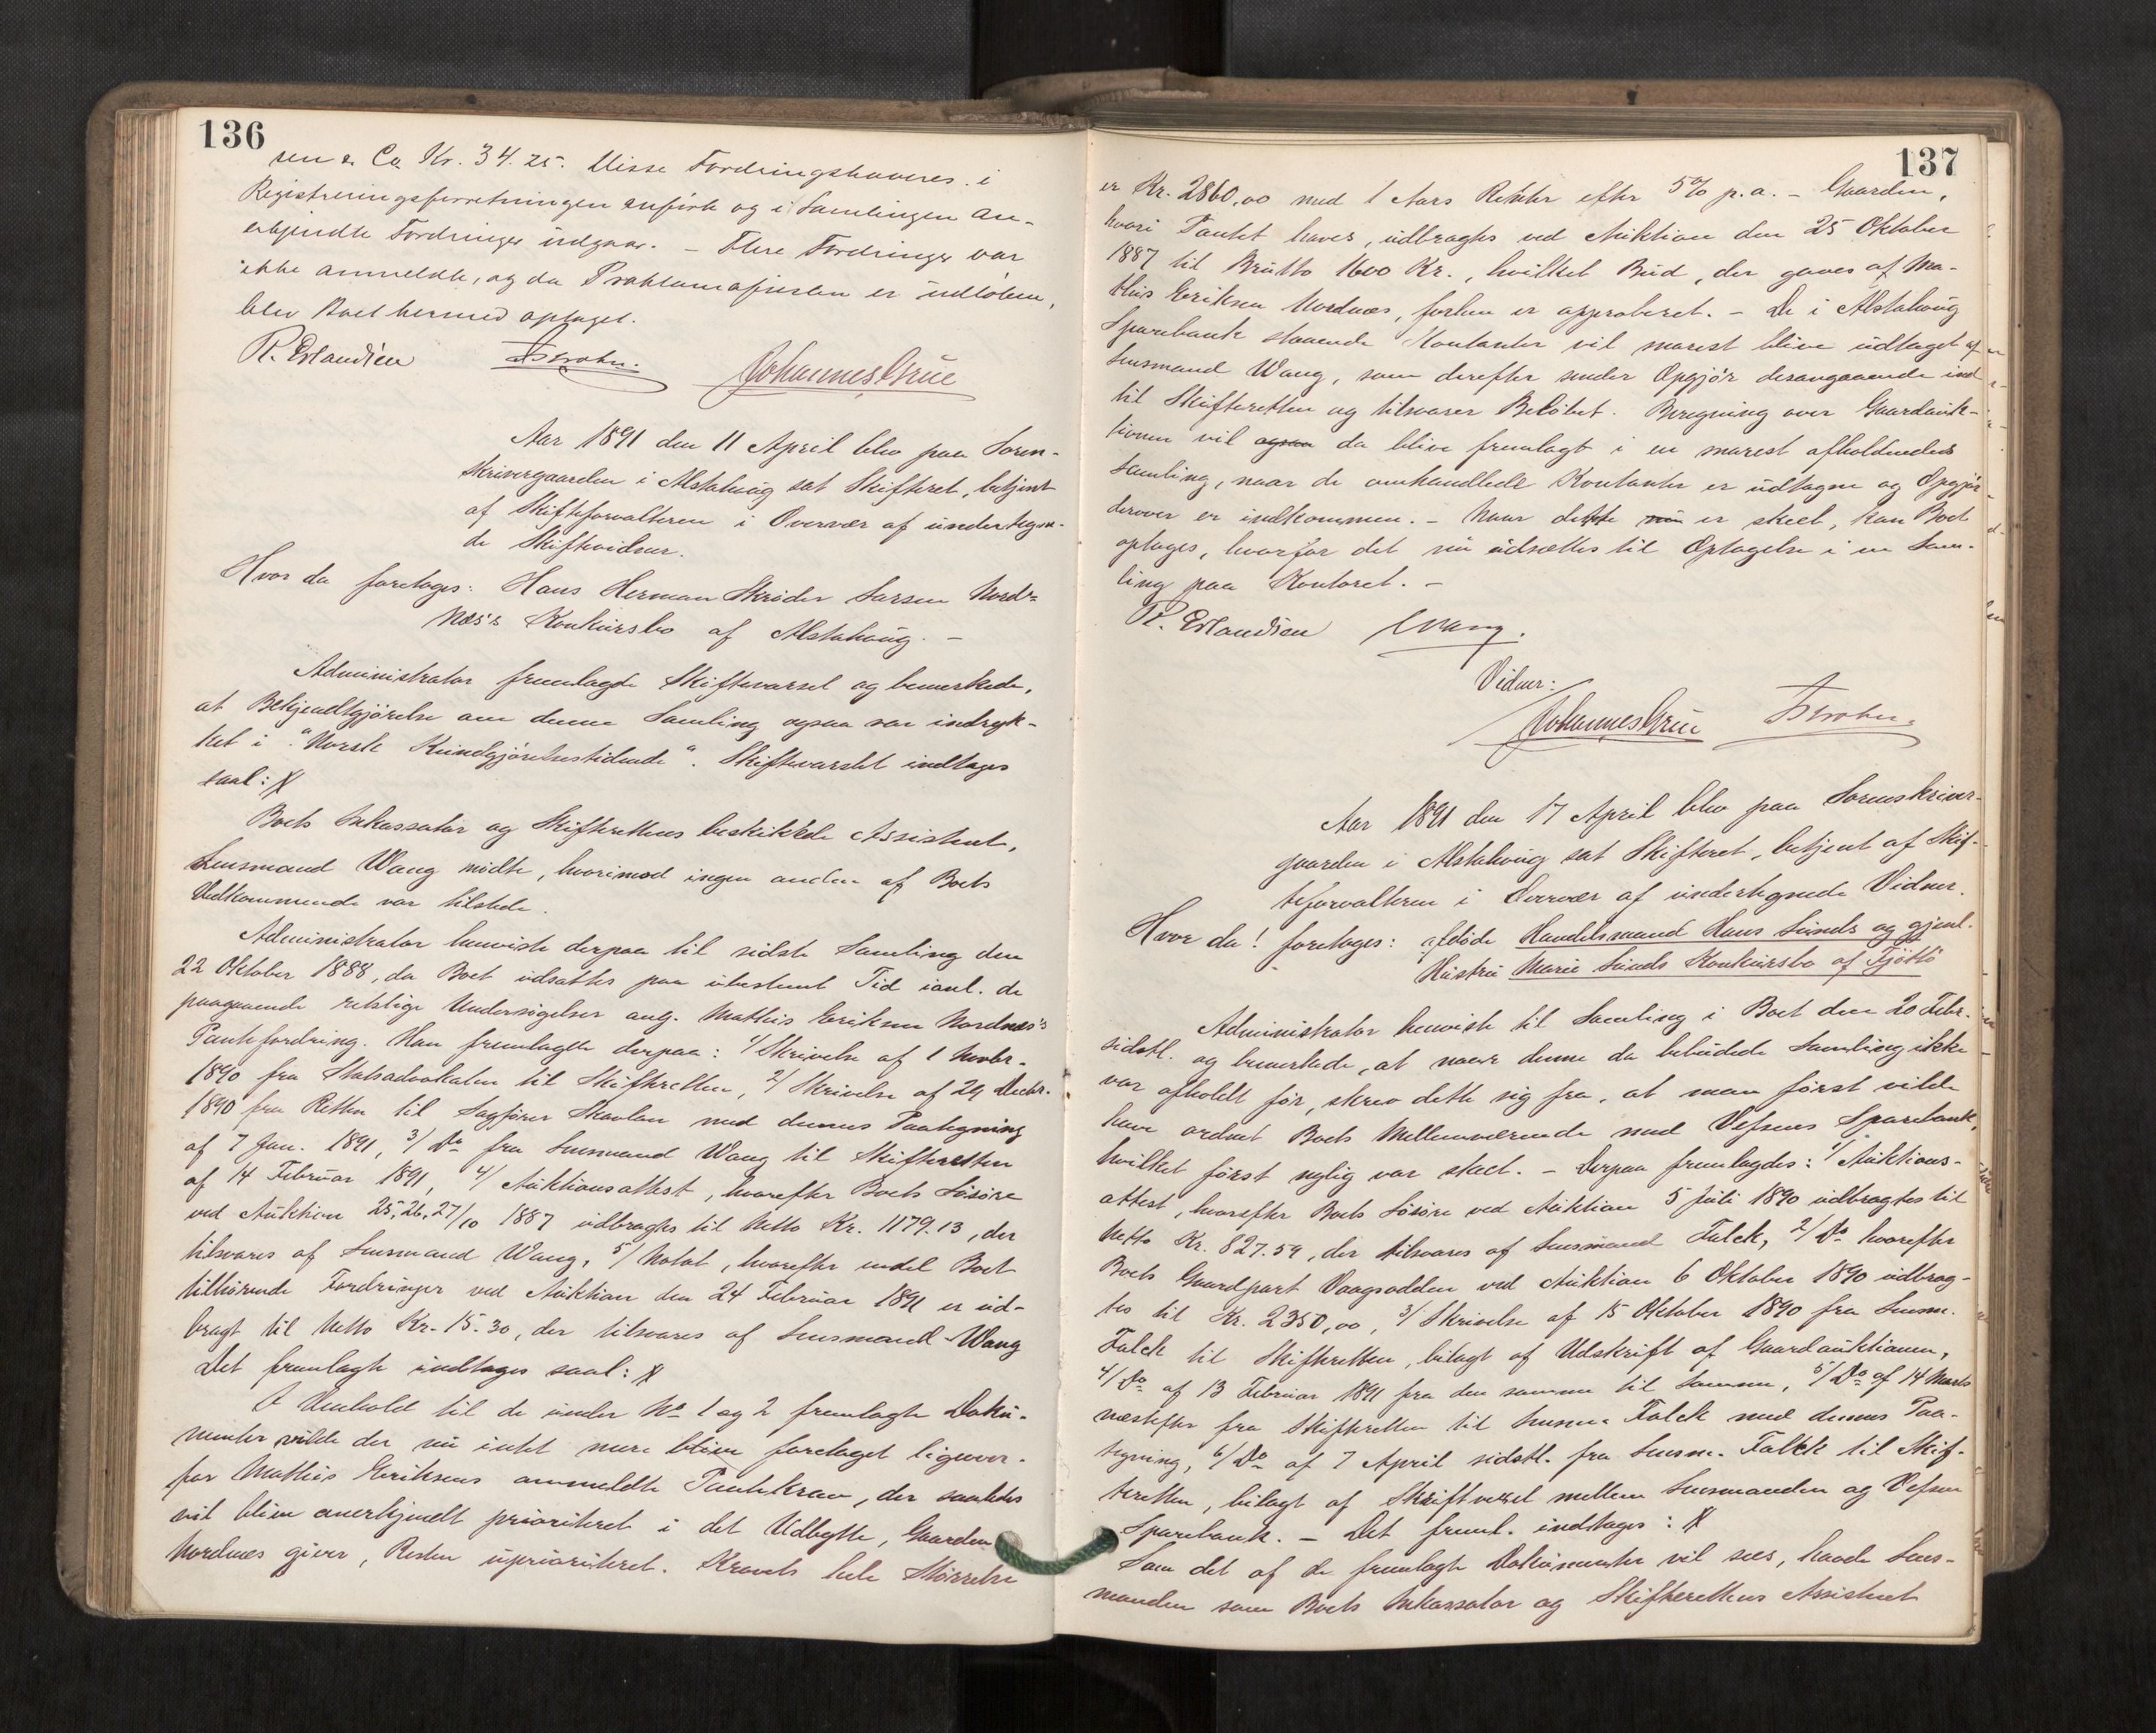 136
sen & Co Kr. 34.25. Disse Fordringshaveres i
Registreringsforretningen anførte og i Samlingen an-
erkjendte Fordringer udgaar. – Flere Fordringer var
ikke anmeldte, og da Proklamafristen er udløben,
blev Boet hermed optaget.
R. Erlandsen Johannes Grüe
Aar 1891 den 11 April blev paa Soren-
skrivergaarden i Alstahoug sat Skifteret, betjent
af Skifteforvalteren i Overvær af undertegne-
de Skiftevidner.
Hvor da foretoges: Hans Herman Skrøder Larsen Nord-
næs's Konkursbo af Alstahoug. –
Administrator fremlagde Skiftevarsel og bemerkede,
at Bekjendtgjørelse om denne Samling ogsaa var indryk-
ket i "Norsk Kundgjørelsestidende". Skiftevarslet indtages
saal:
Boets Inkassator og Skifterettens beskikkede Assistent,
Lensmand Wang mødte, hvorimod ingen anden af Boets
Vedkommende var tilstede.
Administrator henviste derpaa til sidste Samling den
22 Oktober 1888, da Boet udsattes paa ubestemt Tid ianl. de
paagaaende retslige Undersøgelser ang. Mathis Eriksen Nordnæs's
Pantefordring. Han fremlagde derpaa: 1/ Skrivelse af 1 Novbr.
1890 fra Statsadvokaten til Skifteretten, 2/ Skrivelse af 29 Decbr.
1890 fra Retten til Sagfører Skavlan med dennes Paategning
af 7 Jan. 1891, 3/ Do fra Lensmand Wang til Skifteretten
af 14 Februar 1891, 4/ Auktionsattest, hvorefter Boets Løsøre
ved Auktion 25, 26, 27/10 1887 udbragtes til Netto Kr. 1179.13, der
tilsvares af Lensmand Wang, 5/ Notat, hvorefter endel Boet
tilhørende Fordringer ved Auktion den 24 Februar 1891 er ud-
bragt til Netto Kr. 15.30, der tilsvares af Lensmand Wang
Det fremlagte indtages saal:
I Henhold til de under No 1 og 2 fremlagte Doku-
menter vilde der nu intet mere blive foretaget ligeover-
for Mathis Eriksens anmeldte Pantekrav, der saaledes
vil blive anerkjendt prioriteret i det Udbytte, Gaarden
Nordnæs giver, Resten uprioriteret. Kravets hele Størrelse
137
er Kr. 2860,00 med 1 Aars Renter efter 5% p.a. – Gaarden,
hvori Pantet haves, udbragtes ved Auktion den 25 Oktober
1887 til Brutto 1600 Kr., hvilket Bud, der gaves af Ma-
this Eriksen Nordnæs, forlen er approberet. – De i Alstahoug
Sparebank staaende Kontanter vil snarest blive udtaget af
Lensmand Wang, som derefter sender Opgjør desangaaende ind
til Skifteretten og tilsvarer Beløbet. Beregning over Gaardauk-
tionen vil ogsaa da blive fremlagt i en snarest afholdendes
Samling, naar de omhandlede Kontanter er udtagne og Opgjør
derover er indkommen. – Naar dette nu er skeet, kan Boet
optages, hvorfor det nu udsættes til Optagelse i en Sam-
ling paa Kontoret. –
R. Erlandsen Wang.
Vidner:
Johannes Grüe
Aar 1891 den 17 April blev paa Sorenskriver-
gaarden i Alstahoug sat Skifteret, betjent af Skif-
teforvalteren i Overvær af undertegnede Vidner.
Hvor da! foretoges: afdøde Handelsmand Hans Lunds og gjenl.
Hustru Marie Lunds Konkursbo af Tjøttø
Administrator henviste til Samling i Boet den 20 Febr.
sidstl. og bemerkede, at naar denne da bebudede Samling ikke
var afholdt før, skrev dette sig fra, at man først vilde
have ordnet Boets Mellemværende med Vefsens Sparebank,
hvilket først nylig var skeet. – Derpaa fremlagdes: 1/ Auktions-
attest, hvorefter Boets Løsøre ved Auktion 5 Juli 1890 udbragtes til
Netto Kr. 827.59, der tilsvares af Lensmand Falck, 2/ Do hvorefter
Boets Gaardpart Vaagsodden ved Auktion 6 Oktober 1890 udbrag-
tes til Kr. 2350,00, 3/ Skrivelse af 15 Oktober 1890 fra Lensm.
Falck til Skifteretten, bilagt af Udskrift af Gaardauktionen,
4/ Do af 13 Februar 1891 fra den samme til samme, 5/ Do af 14 Marts
næstefter fra Skifteretten til Lensm. Falck med dennes Paa-
tegning, 6/ Do af 7 April sidstl. fra Lensm. Falck til Skif-
teretten, bilagt af Skriftvexel mellem Lensmanden og Vefsen
Sparebank. – Det freml. indtages:
Som det af de fremlagte Dokumenter vil sees, havde Lens-
manden som Boets Inkassator og Skifterettens Assistent